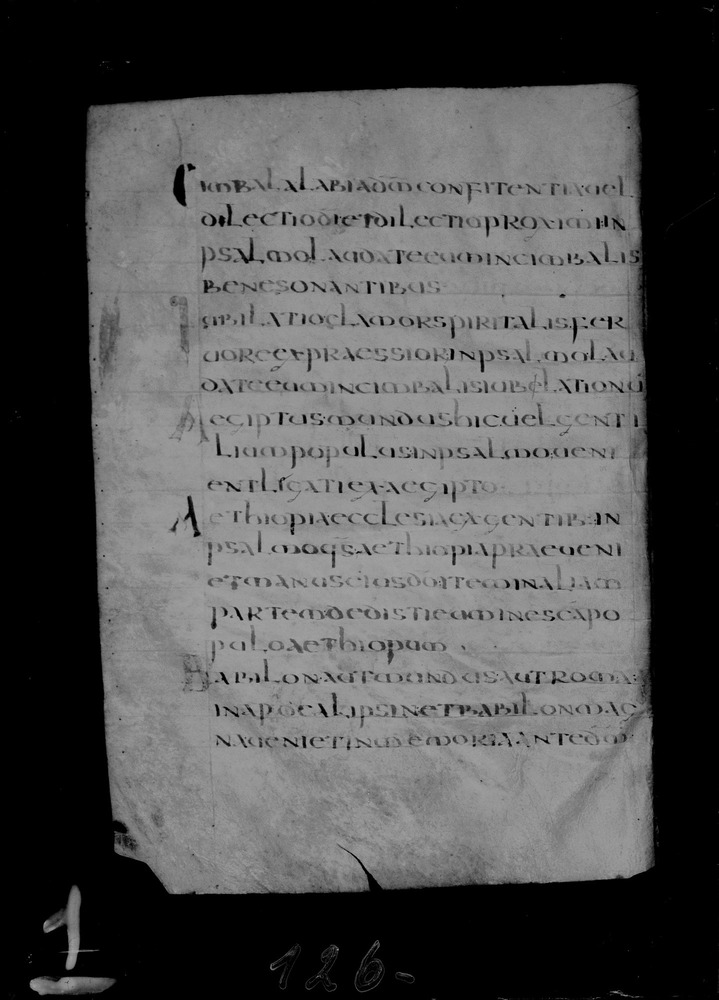 CIMBALA LABIA DM CONFITENTIA UEL
DILECTIO DI ET DILECTIO PROXIMI IN
PSALMO LAUDATE EUM IN CIMBALIS
BENESONANTIBUS
IUBILATIO CLAMOR SPIRITALIS FER
UORE EXPRAESSIOR IN PSALMO LAU
DATE EUM IN CIMBALIS IUBELATIONIS
AEGIPTUS MUNDUS HIC UEL GENTI
LIUM POPULUS IN PSALMO UENI
ENT LEGATI EX AEGIPTO
AETHIOPIA ECCLESIA EX GENTIB IN
PSALMO QS AETHIOPIA PRAEUENI
ET MANUS EIUS DO ITEM IN ALIAM
PARTEM DEDISTI EUM IN ESCA PO
PULO AETHIOPUM
BABILON AUT MUNDUS AUT ROMA
IN APOCALIPSIN ET BABILON MAG
NA UENIET IN MEMORIA ANTE DM
1
126-